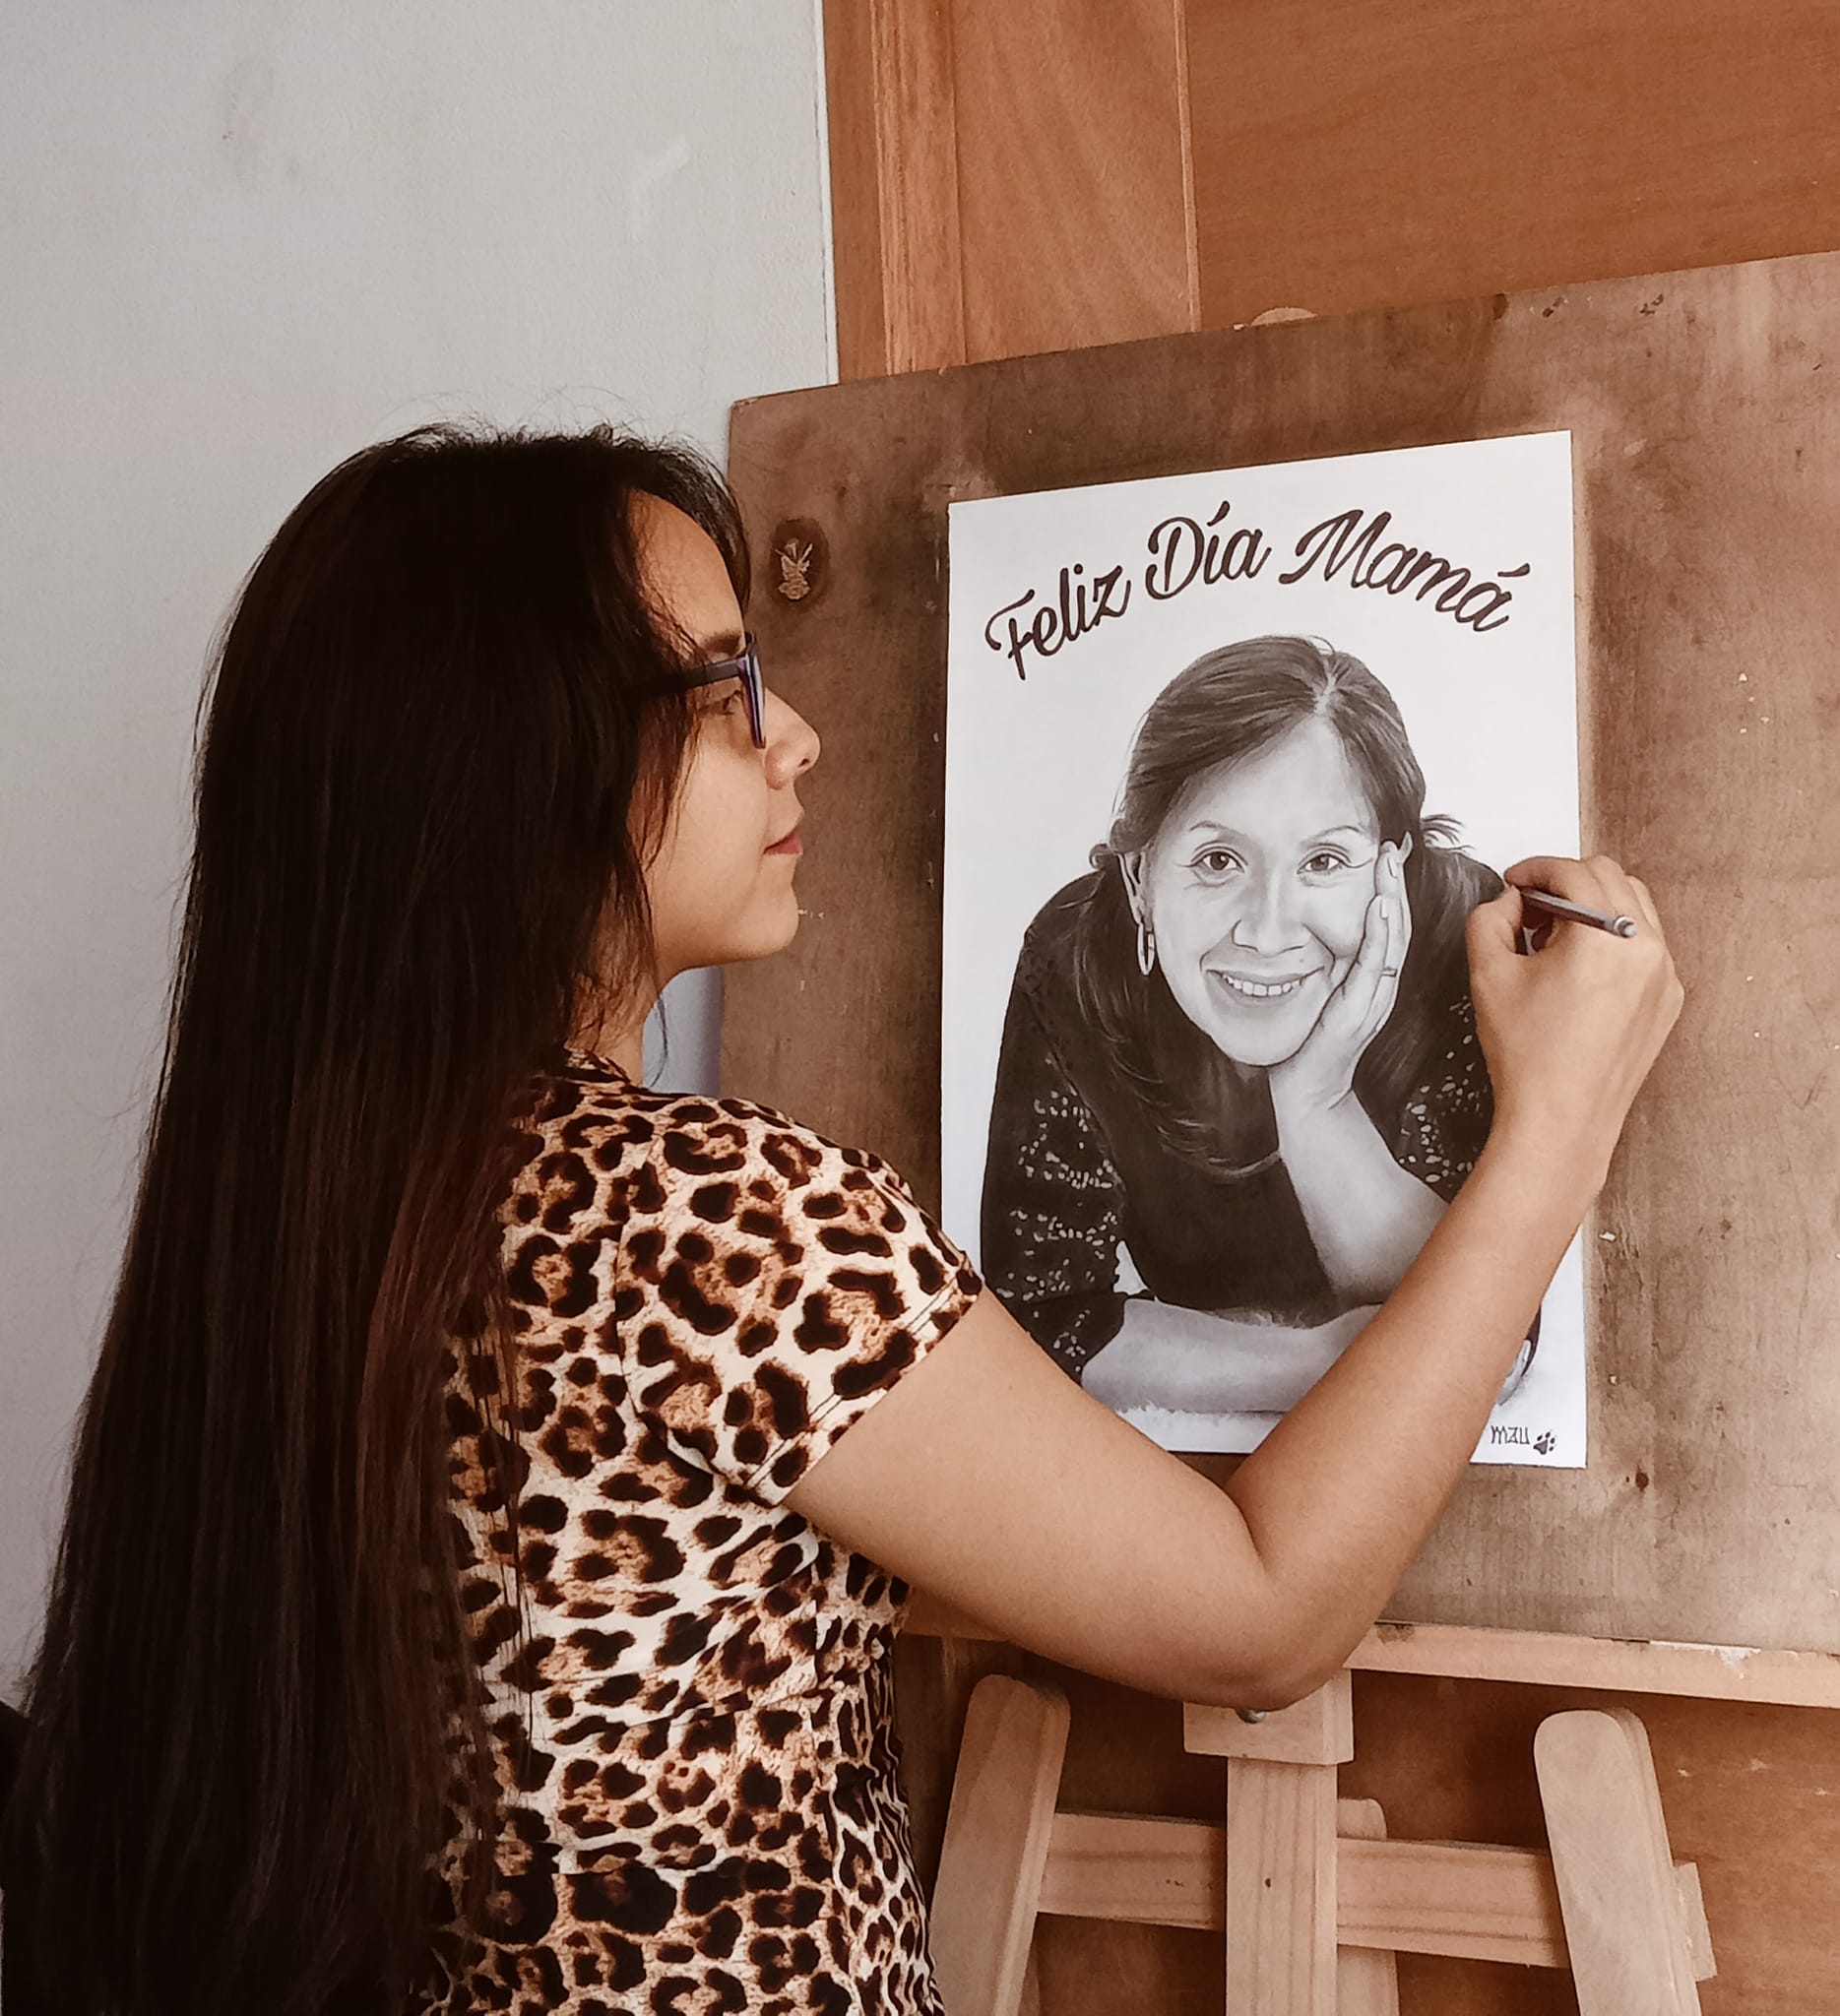 Feliz Día Mamá
mau